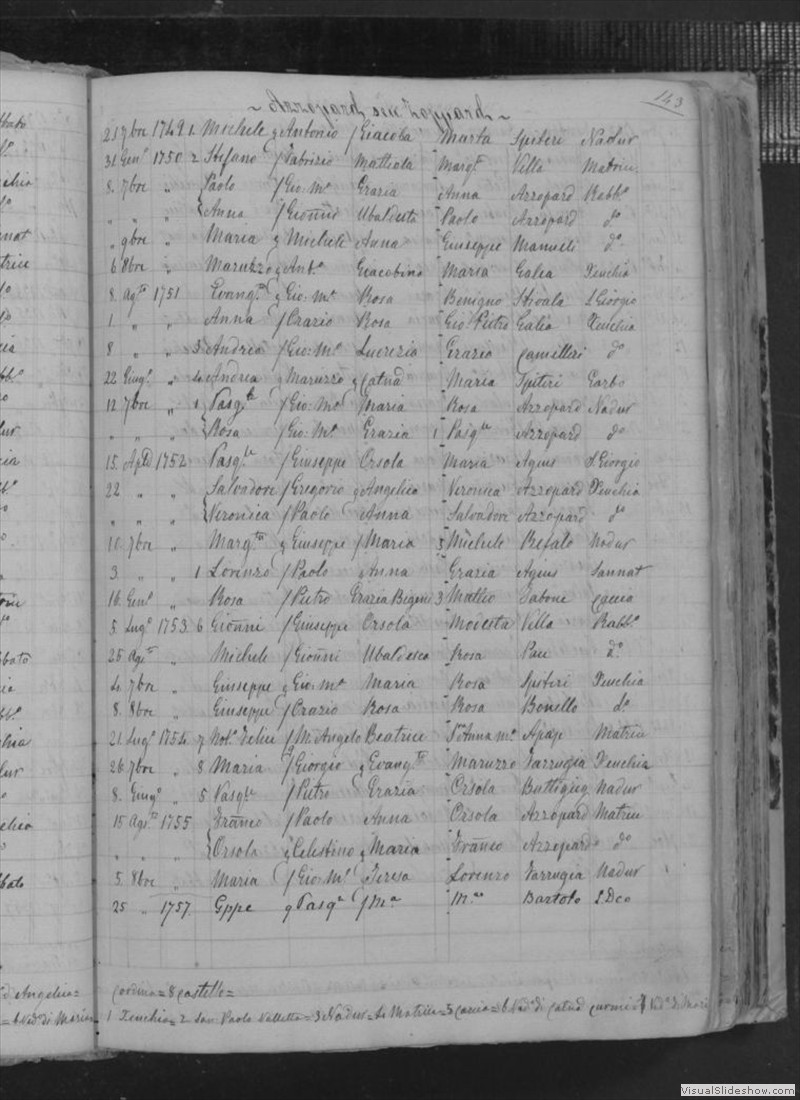 143
~ Azzopard seu Zoppard ~
25 7bre 1749 1 Michele q Antonio f Giacoba Marta Spiteri Nadur
31 Genº 1750 2 Stefano f Fabrizio Matteola Margta Villa Matrice
8 7bre " Paolo f Gio: Mª Grazia Anna Azzopard Rabbº
" " " Anna f Gioñni Ubaldesca Paolo Azzopard dº
" 9bre " Maria q Michele Anna Giuseppe Manueli dº
6 8bre " Maruzzo q Antº Giacobina Maria Galea Xeuchia
8 Agto 1751 Evangta q Gio: Mª Rosa Benigno Stivala S Giorgio
1 " " Anna f Orazio Rosa Gio Pietro Galia Xeuchia
8 " " 3 Andrea f Gio: Mª Lucrezia Grazia Camilleri dº
22 Giugº " 4 Andrea q Maruzzo q Catnã Maria Spiteri Garbo
12 7bre " 1 Pasqle f Gio: Mª Maria Rosa Azzopard Nadur
" " " Rosa f Gio: Mª Grazia 1 Pasqle Azzopard dº
15 Aple 1752 Pasqle f Giuseppe Orsola Maria Agius S Giorgio
22 " " Salvadore f Gregorio q Angelica Veronica Azzopard Xeuchia
" " " Veronica f Paolo Anna Salvadore Azzopard dº
10 7bre " Margta q Giuseppe f Maria 5 Michele Refalo Nadur
3 " " 1 Lorenzo f Paolo q Anna Grazia Agius Sannat
16 Genº " Rosa f Pietro Grazia Bigeni 3 Matteo Tabone Caccia
5 Lugº 1753 6 Gioñni f Giuseppe Orsola Modesta Villa Rabbº
25 Agto " Michele f Gioñni Ubaldesca Rosa Pace dº
4 7bre " Giuseppe q Gio: Mª Maria Rosa Spiteri Xeuchia
8 8bre " Giuseppe f Orazio Rosa Rosa Bonello dº
21 Lugº 1754 7 Nobe Felice f M. Angelo Beatrice Sra Anna Mª Apap Matrice
26 7bre " 8 Maria f Giorgio q Evangta Maruzzo Farrugia Xeuchia
8 Giugº " 5 Pasqle f Pietro Grazia Orsola Buttigieg Nadur
15 Agto 1755 Frañco f Paolo Anna Orsola Azzopard Matrice
" " " Orsola q Celestino q Maria Frañco Azzopardo dº
5 8bre " Maria f Gio: Mª Teresa Lorenzo Farrugia Nadur
25 " 1757 Gppe q Pasqe f Mª Mª Bartolo S. Dco
Cordina = 8 Castello =
1 Xeuchia = 2 San Paolo Valletta = 3 Nadur = 4 Matrice = 5 Caccia = 6 Vedº di Catnã Curmi = 7 Vedº di Maria
VisualSlideshow.com